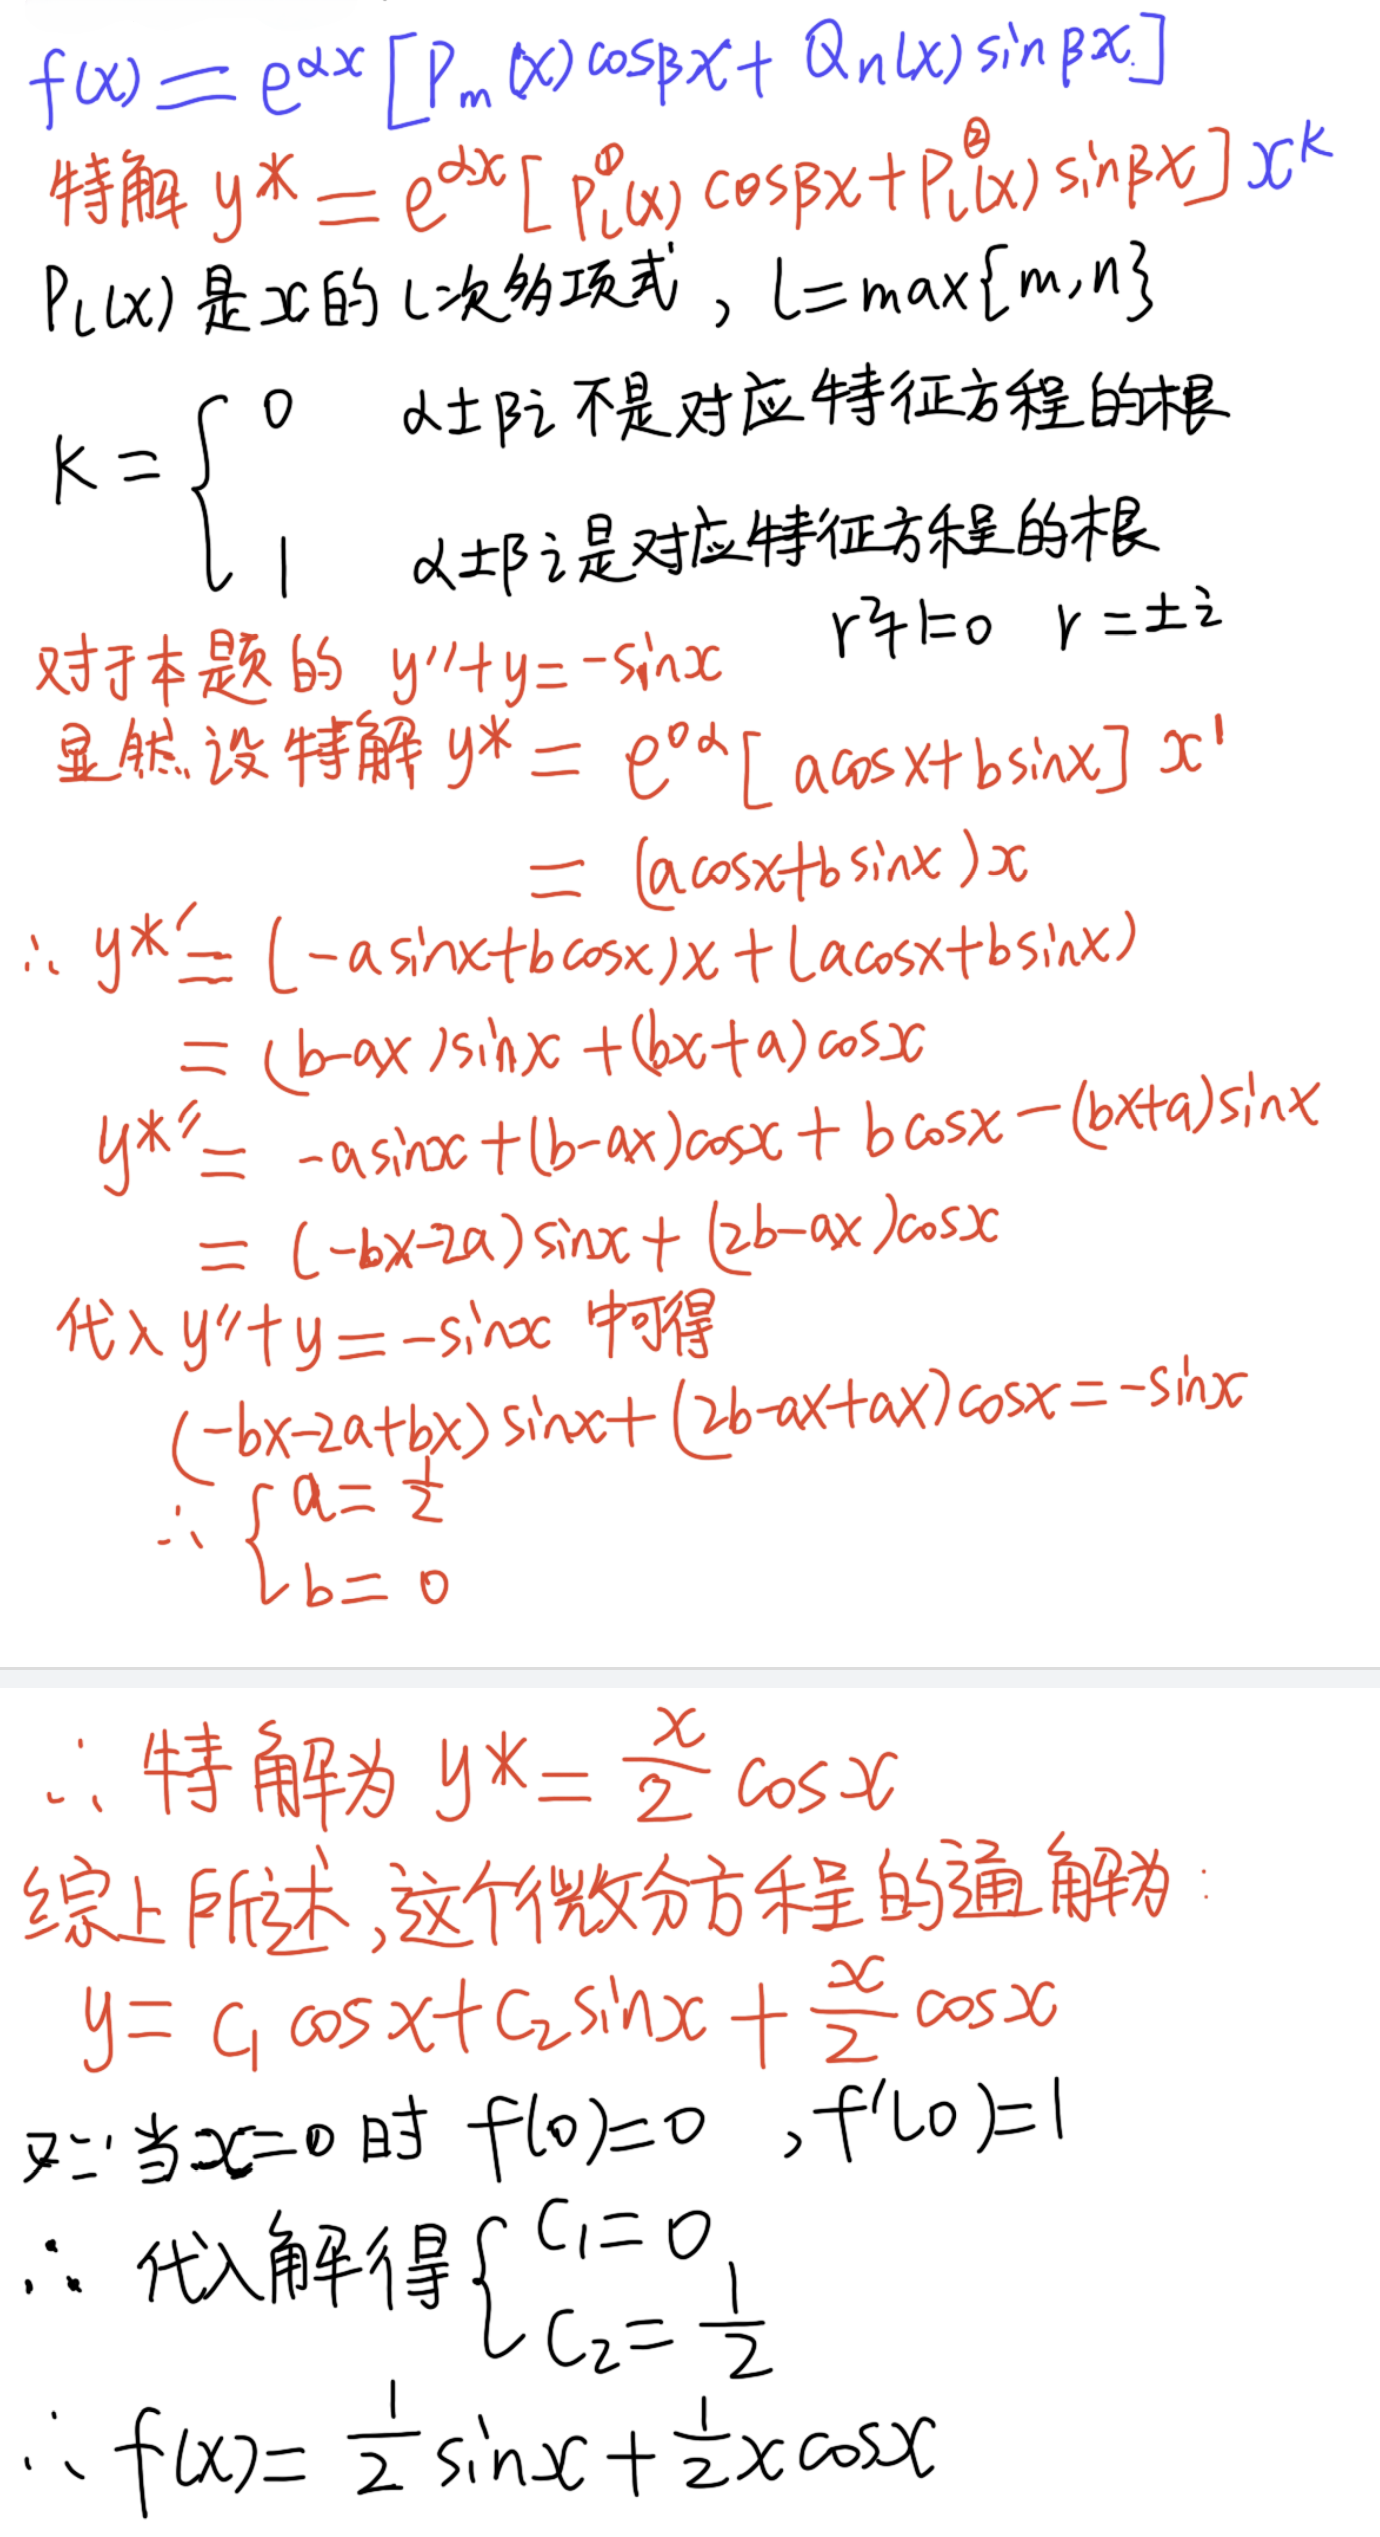 f(x)=e^{αx}[P_m(x)cosβx+Q_n(x)sinβx]
特解 y*=e^{αx}[P_l^①(x)cosβx+P_l^②(x)sinβx]x^k
P_l(x)是x的l次多项式，l=max{m,n}
k={0 α±βi不是对应特征方程的根
1 α±βi是对应特征方程的根
r²+1=0 r=±i
对于本题的 y''+y=-sinx
显然设特解y*=e^{0α}[acosx+bsinx]x^1
=(acosx+bsinx)x
∴ y*'=(-asinx+bcosx)x+(acosx+bsinx)
=(b-ax)sinx+(bx+a)cosx
y*''=-asinx+(b-ax)cosx+bcosx-(bx+a)sinx
=(-bx-2a)sinx+(2b-ax)cosx
代入y''+y=-sinx 中可得
(-bx-2a+bx)sinx+(2b-ax+ax)cosx=-sinx
∴ {a=1/2
b=0
∴ 特解为 y*=x/2 cosx
综上所述,这个微分方程的通解为:
y=C₁cosx+C₂sinx+x/2 cosx
又∵当x=0时 f(0)=0 ,f'(0)=1
∴ 代入解得{C₁=0
C₂=1/2
∴ f(x)=1/2 sinx+1/2 xcosx